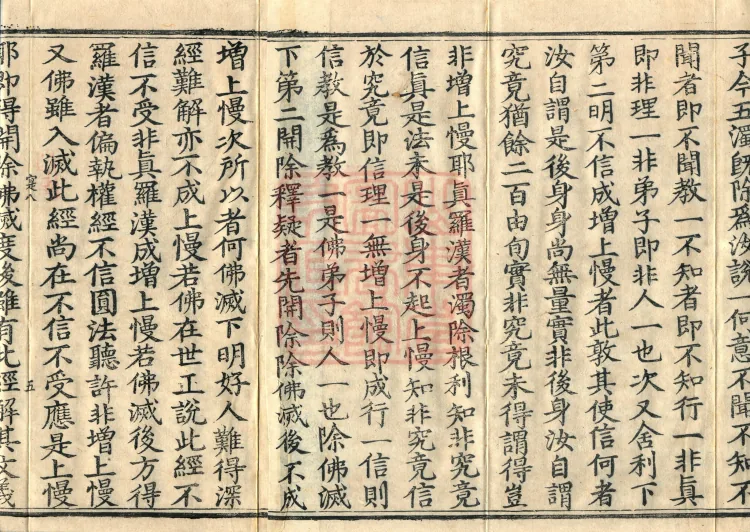 子今五濁既除爲汝説一何意不聞不知不
聞者即不聞教一不知者即不知行一非真
即非理一非弟子即非人一也次又舍利下
第二明不信成增上慢者此敦其使信何者
汝自謂是後身身尚無量實非後身汝自謂
究竟猶餘二百由旬實非究竟未得謂得豈
非增上慢耶眞羅漢者濁除根利知非究竟
信眞是法未是後身不起上慢知非究竟信
於究竟即信理一無增上慢即成行一信則
信教是爲教一是佛弟子則人一也除佛滅
下第二開除釋疑者先開除除佛滅後不成
增上慢次所以者何佛滅下明好人難得深
經難解亦不成上慢若佛在世正說此經不
信不受非眞羅漢成增上慢若佛滅後方得
羅漢者偏執權經不信圓法聽許非增上慢
又佛雖入滅此經尚在不信不受應是上慢
寔八
五
耶即得開除佛滅度後雖有此經解其文義